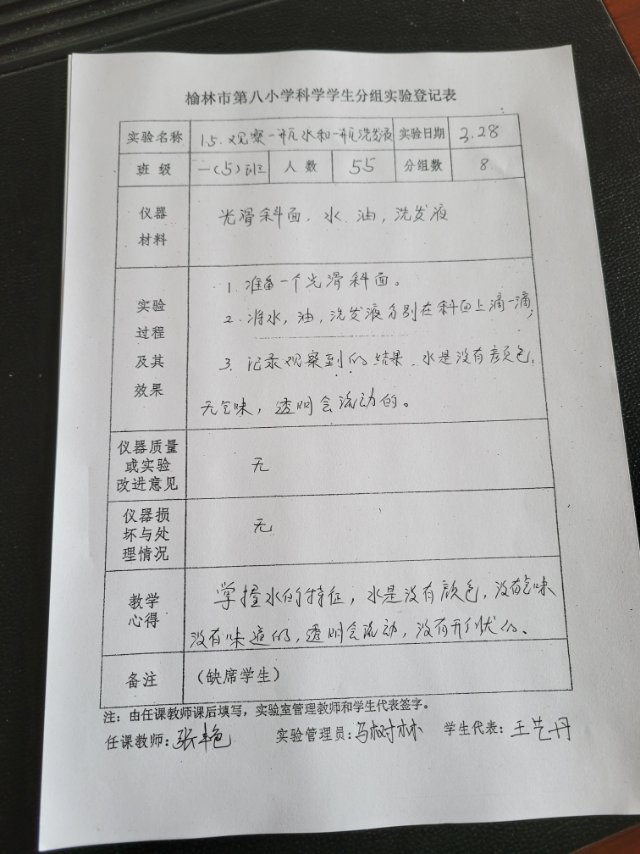 榆林市第八小学科学学生分组实验登记表
实验名称 15.观察一瓶水和一瓶洗发液 实验日期 3.28
班 级 一(5)班 人 数 55 分组数 8
仪器
材料
光滑斜面、水、油,洗发液
实验
过程
及其
效果
1.准备一个光滑斜面。
2.将水,油,洗发液分别在斜面上滴一滴;
3.记录观察到的结果,水是没有颜色,
无气味,透明会流动的。
仪器质量
或实验
改进意见
无
仪器损
坏与处
理情况
无
教学
心得
掌握水的特征,水是没有颜色,没有气味
没有味道的,透明会流动,没有形状的。
备注 (缺席学生)
注:由任课教师课后填写,实验室管理教师和学生代表签字。
任课教师:张艳 实验管理员:马树林 学生代表:王艺丹